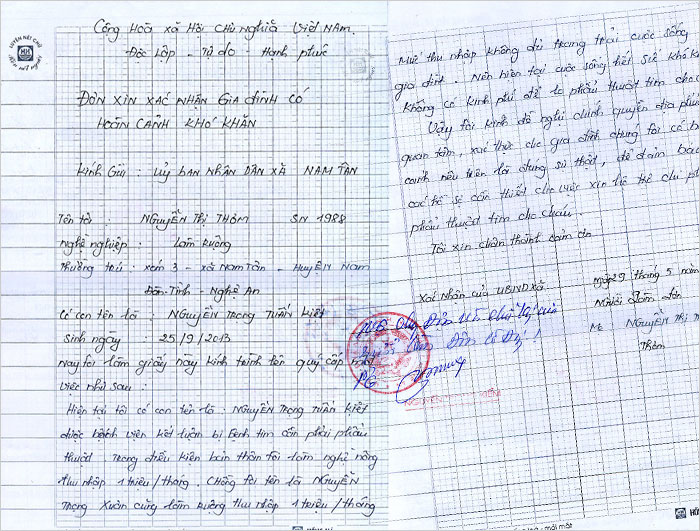 LUYỆN NÉT CHỮ
HH
RÈN NẾT NGƯỜI
Cộng Hoà xã Hội chủ nghĩa Việt NAM.
Độc lập - Tự do - Hạnh phúc
ĐƠN XIN XÁC NHẬN GIA ĐÌNH CÓ
HOÀN CẢNH KHÓ KHĂN
Kính Gửi : UỶ BAN NHÂN DÂN XÃ NAM TÂN
Tên tôi : NGUYỄN THỊ THƠM SN 1988
Nghề nghiệp : Làm ruộng
Thường trú : xóm 3 - xã NAM TÂN - HUYỆN NAM
ĐÀN - TỈNH - NGHỆ AN
Có con tên là : NGUYỄN TRỌNG TUẤN KIỆT
sinh ngày : 25/9/2013
nay tôi làm giấy này kính trình lên quý cấp một
việc như sau :
Hiện tại tôi có con tên là : NGUYỄN TRỌNG TUẤN KIỆT
được bệnh viện kết luận bị bệnh tim cần phải phẫu
thuật. Trong điều kiện bản thân tôi làm nghề nông
thu nhập 1 triệu / tháng. Chồng tôi tên là NGUYỄN
Trọng Xuân cũng làm ruộng thu nhập 1 triệu / tháng
Mức thu nhập không đủ trang trải cuộc sống
gia đình. Nên hiện tại cuộc sống hết sức khó
không có kinh phí để lo phẫu thuật tim cho
Vậy tôi kính đề nghị chính quyền địa
quan tâm, xác thực cho gia đình chúng tôi có
cảnh nêu trên là đúng sự thật, để đảm
các hồ sơ cần thiết cho việc xin hỗ trợ chi
phẫu thuật tim cho cháu.
Tôi xin chân thành cảm ơn
Xác Nhận của UBND xã
29 tháng 5 năm
Người Làm đơn
Mẹ NGUYỄN THỊ
Thơm